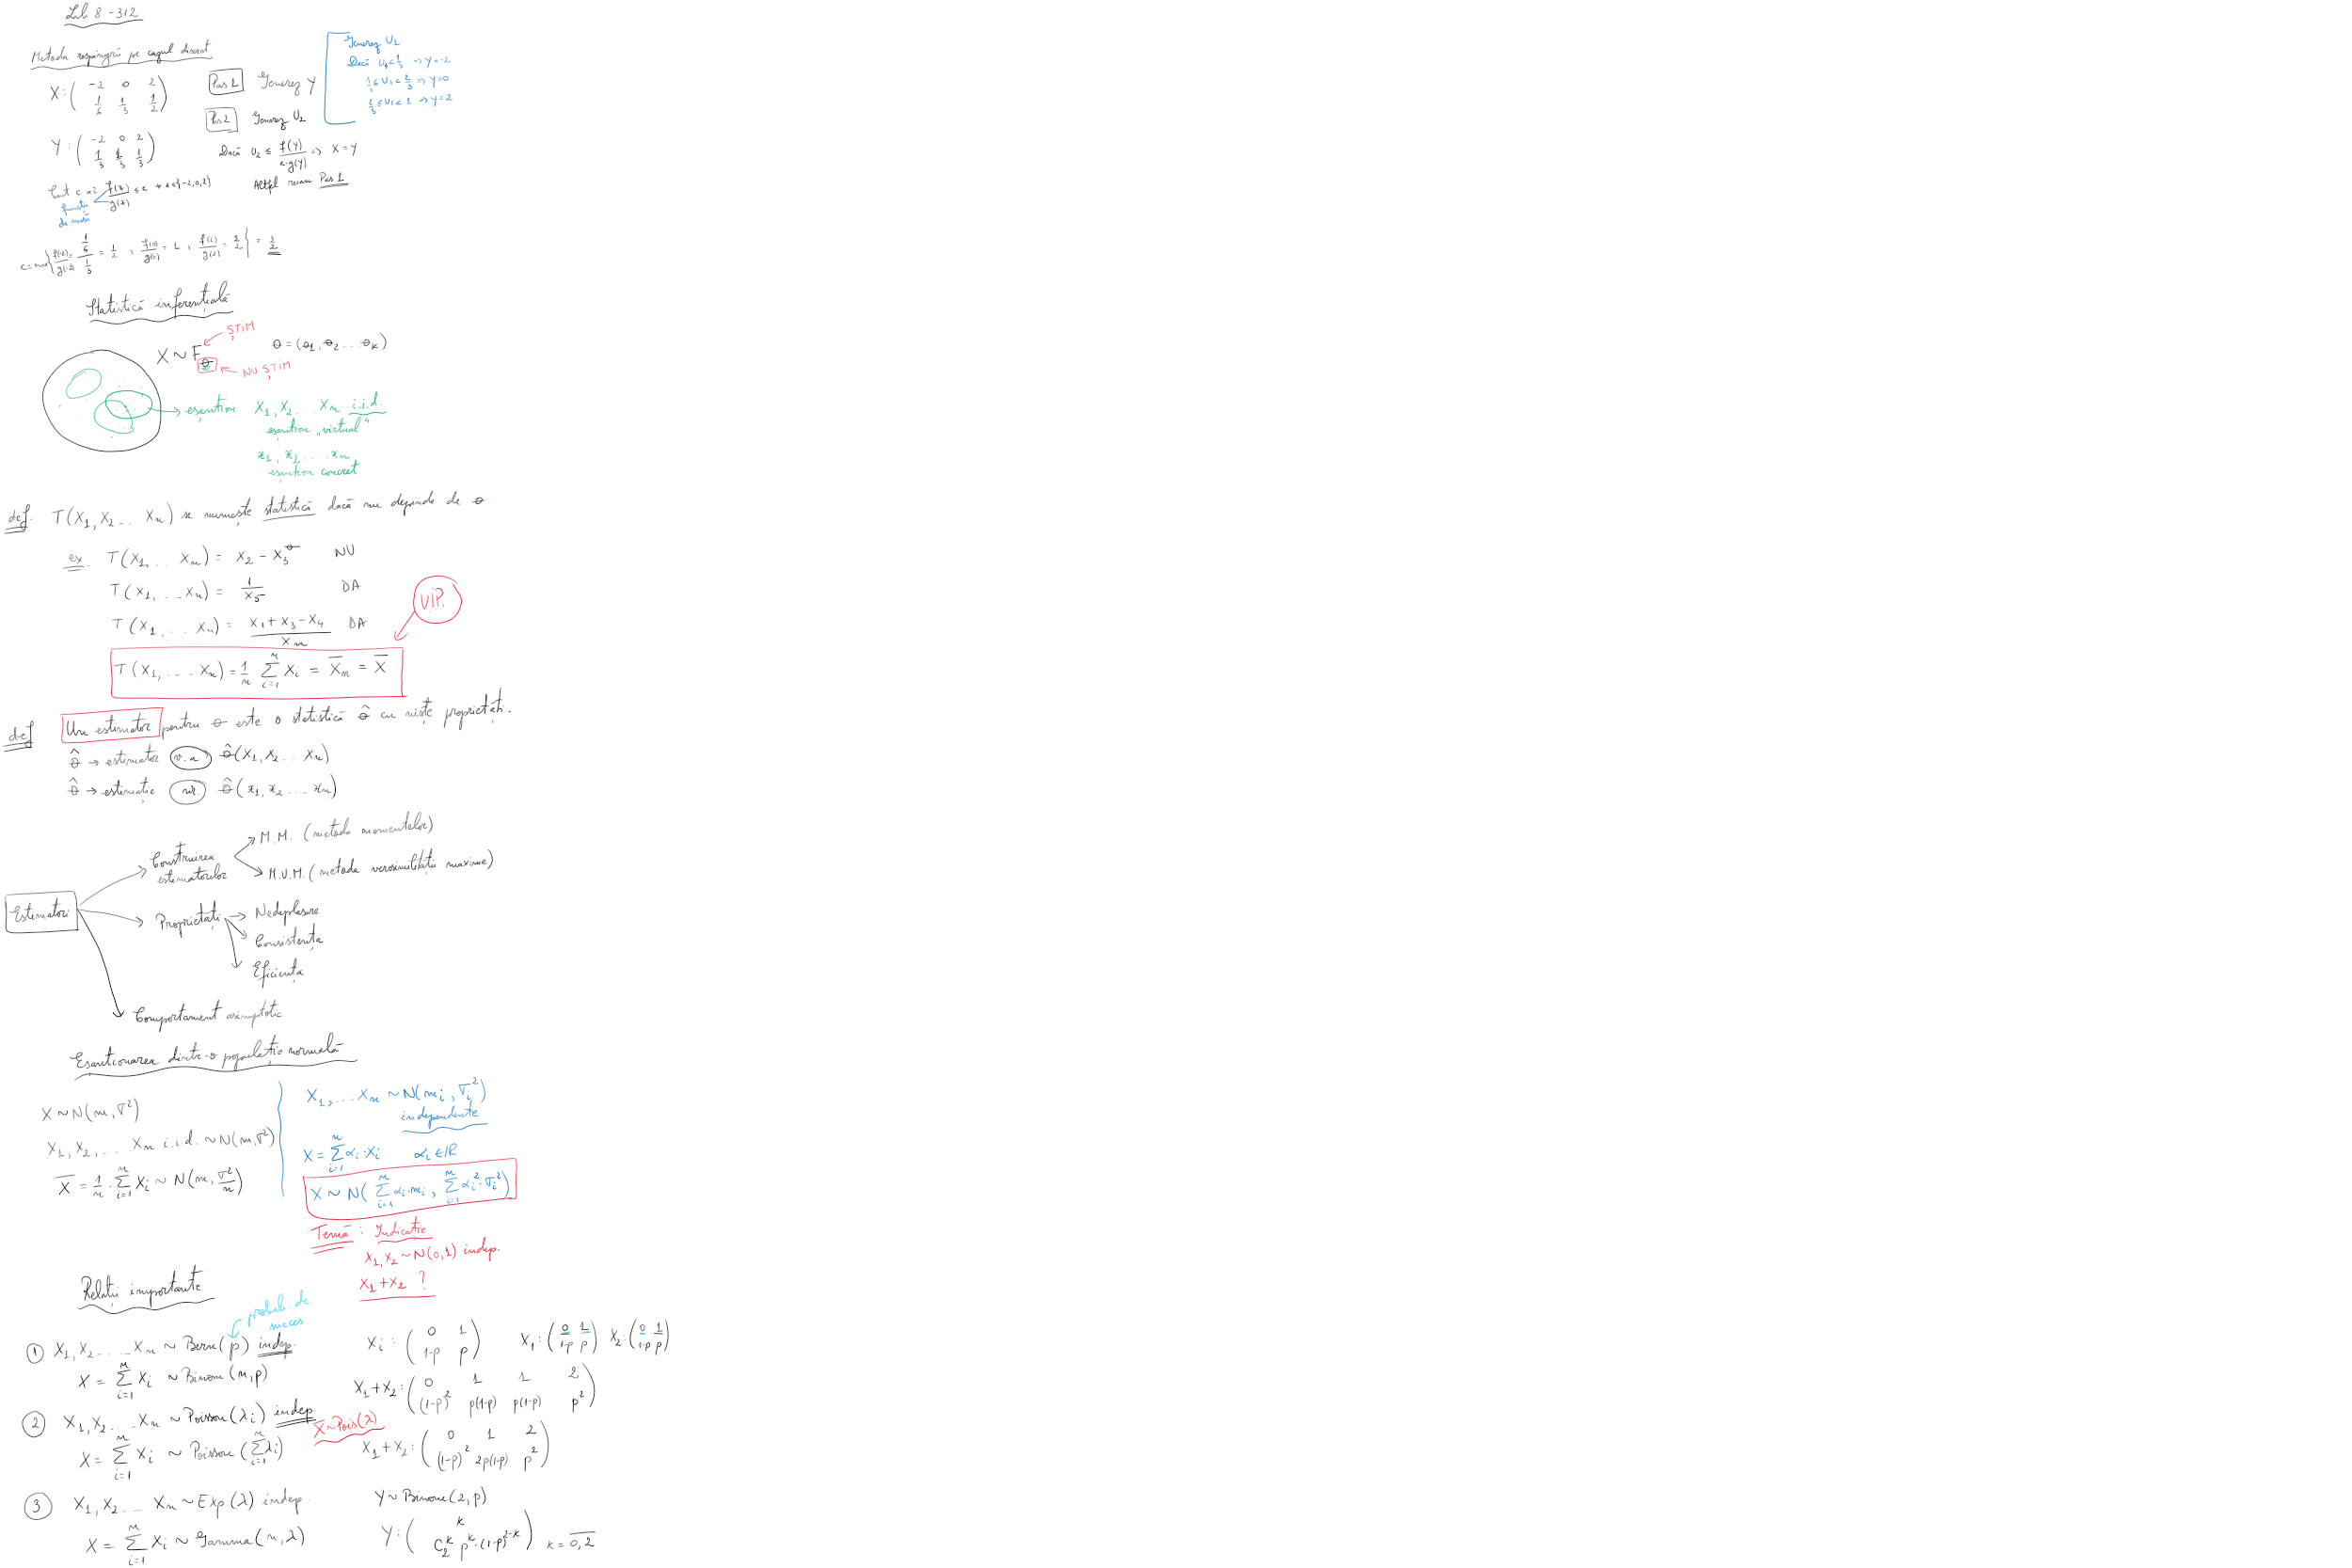 Lab 8 - 312
Metoda respingerii pe cazul discret
X : ( -2 0 2
1/6 1/3 1/2 )
Y : ( -2 0 2
1/3 1/3 1/3 )
Pas 1 Generez Y
Generez U1
Dacă U1 < 1/3 => Y = -2
1/3 ≤ U1 < 2/3 => Y = 0
2/3 ≤ U1 < 1 => Y = 2
Pas 2 Generez U2
Dacă U2 ≤ f(Y)/(c·g(Y)) => X = Y
Altfel reiau Pas 1
Caut c a.î. f(x)/g(x) ≤ c ∀ x ∈ {-2, 0, 2}
funcții
de masă
c = max { f(-2)/g(-2) = (1/6)/(1/3) = 1/2 , f(0)/g(0) = 1 , f(2)/g(2) = 3/2 } = 3/2
Statistică inferențială
X ~ Fθ
ȘTIM
NU ȘTIM
θ = (θ1, θ2 ... θk)
eșantion X1, X2 ... Xn i.i.d.
eșantion „virtual“
x1, x2 .... xn
eșantion concret
def. T(X1, X2 ... Xn) se numește statistică dacă nu depinde de θ.
ex. T(X1, ... Xn) = X2 - X3^θ NU
T(X1, ... Xn) = 1/X5 DA
T(X1, ... Xn) = (X1 + X3 - X4)/Xn DA
V.I.P.
T(X1, ... Xn) = 1/n ∑_{i=1}^{n} Xi = X̄n = X̄
def Un estimator pentru θ este o statistică θ̂ cu niște proprietăți.
θ̂ → estimator v.a θ̂(X1, X2 ... Xn)
θ̂ → estimație nr. θ̂(x1, x2 ... xn)
Estimatori
Construirea
estimatorilor
M.M. (metoda momentelor)
M.V.M. (metoda verosimilității maxime)
Proprietăți → Nedeplasare
Consistența
Eficiența
Comportament asimptotic
Eșantionarea dintr-o populație normală
X ~ N(m, σ²)
X1, X2, ... Xn i.i.d. ~ N(m, σ²)
X̄ = 1/n · ∑_{i=1}^{n} Xi ~ N(m, σ²/n)
X1, ... Xn ~ N(mi, σi²)
independente
X = ∑_{i=1}^{n} αi·Xi αi ∈ ℝ
X ~ N( ∑_{i=1}^{n} αi·mi , ∑_{i=1}^{n} αi²·σi² )
Temă : Indicație
X1, X2 ~ N(0,1) indep.
X1 + X2 ?
Relații importante
probab. de
succes
① X1, X2 .... Xn ~ Bern(p) indep.
X = ∑_{i=1}^{n} Xi ~ Binom(n, p)
② X1, X2 ... Xn ~ Poisson(λi) indep
X ~ Pois(λ)
X = ∑_{i=1}^{n} Xi ~ Poisson(∑_{i=1}^{n} λi)
③ X1, X2 ... Xn ~ Exp(λ) indep.
X = ∑_{i=1}^{n} Xi ~ Gamma(n, λ)
Xi : ( 0 1
1-p p )
X1 : ( 0 1
1-p p )
X2 : ( 0 1
1-p p )
X1 + X2 : ( 0 1 1 2
(1-p)² p(1-p) p(1-p) p² )
X1 + X2 : ( 0 1 2
(1-p)² 2p(1-p) p² )
Y ~ Binom(2, p)
Y : ( k
C_2^k p^k·(1-p)^{2-k} ) k = 0,2